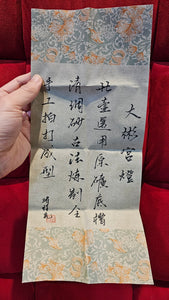 大彬宮燈
此壺選用原礦底槽
清調砂古法煉制全
手工拍打成型